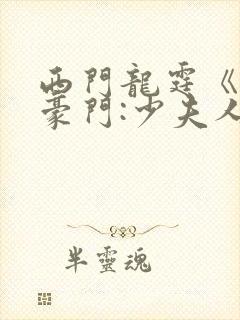 西門龍霆《
豪門:少夫人
半靈魂